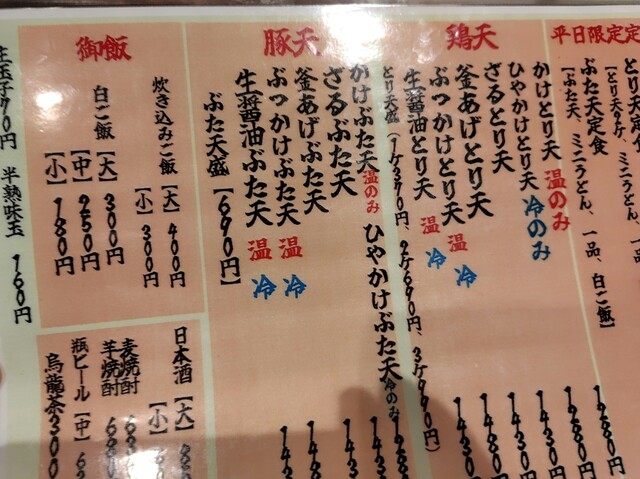 平日限定定
とり天定食
【とり天2ケ、ミニうどん、一品、
ぶた天定食
【ぶた天、ミニうどん、一品、白ご飯】
鶏天
かけとり天 温のみ
ひやかけとり天 冷のみ
ざるとり天
釜あげとり天
ぶっかけとり天 温 冷
生醤油とり天 温 冷
とり天盛(1ケ370円、2ケ690円、3ケ990円)
豚天
かけぶた天 温のみ ひやかけぶた天 冷のみ
ざるぶた天
釜あげぶた天
ぶっかけぶた天 温 冷
生醤油ぶた天 温 冷
ぶた天盛【690円】
御飯
炊き込みご飯【大】400円
【小】300円
白ご飯【大】300円
【中】250円
【小】180円
日本酒【大】
【小】
麦焼酎
芋焼酎
瓶ビール【中】
烏龍茶300
生玉子70円 半熟味玉 160円